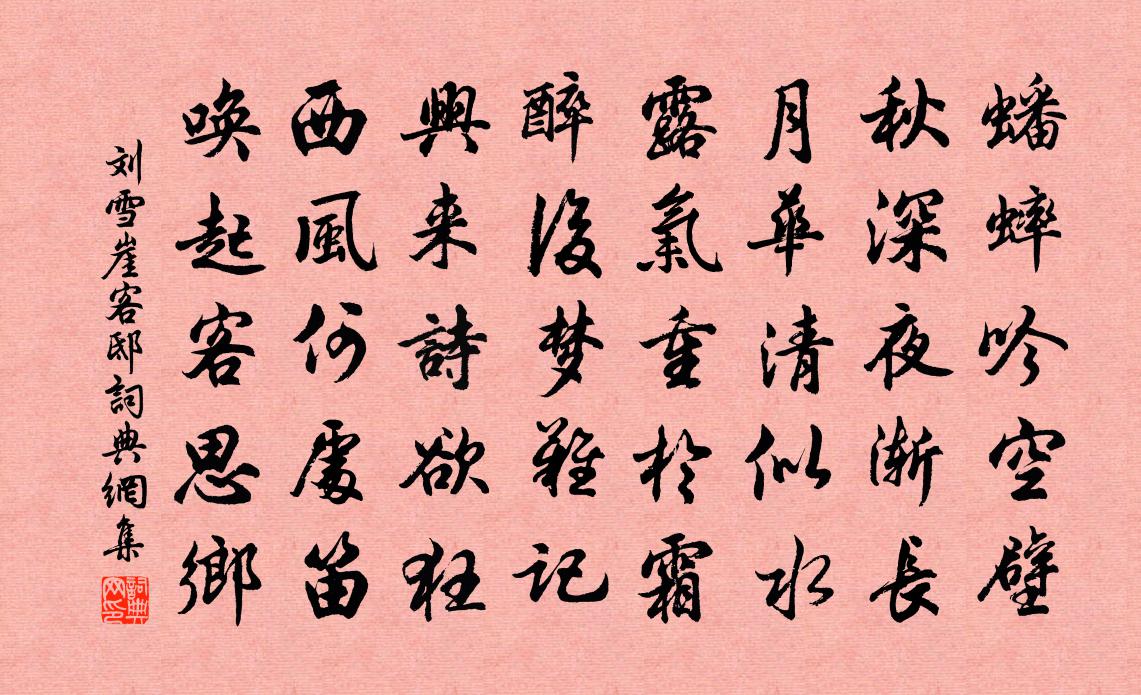 蟠蟀吟空壁
秋深夜渐長
月華清似水
露氣重於霜
醉後梦難記
興来詩欲狂
西風何處笛
喚起客思鄉
刘雪崖客邸詞典網集
詞典网印